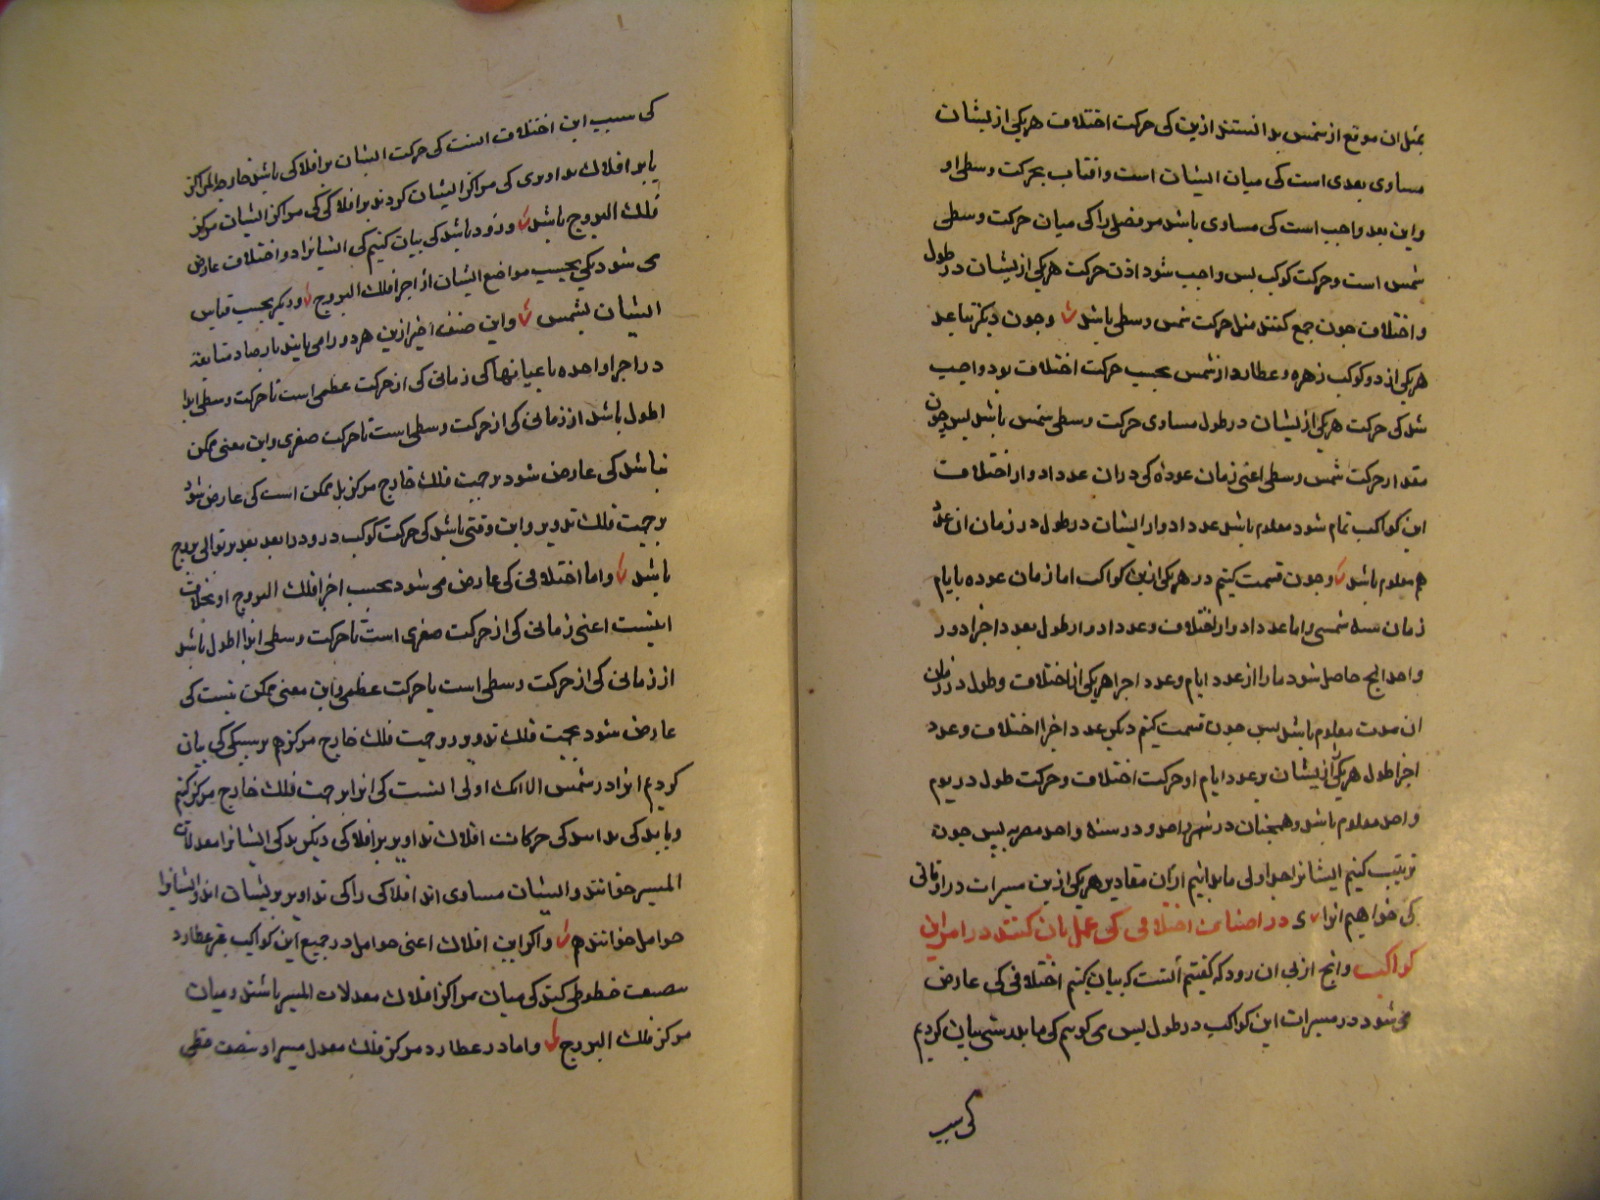 بمثل ان موقع از شمس بدانستند ازین کی حرکت اختلاف هر یکی از یشان
مساوی بعدی است کی میان ایشان است وافتاب بحرکت وسطی او
واین بعد واجب است کی مساوی باشد مر فضلی را کی میان حرکت وسطی
شمس است وحرکت کوکب بس واجب شود ازن حرکت هر یکی از یشان در طول
واختلاف جون جمع کنند مثل حرکت شمس وسطی باشد وجون دیکر تباعد
هر یکی از دو کوکب زهره وعطارد از شمس بحسب حرکت اختلاف بود واجب
شد کی حرکت هر یکی از یشان در طول مساوی حرکت وسطی شمس باشد بس جون
مقدار حرکت شمس وسطی اعنی زمان عوده کی دران عدد ادوار اختلاف
این کواکب تمام شود معلوم باشد عدد ادوار ایشان در طول در زمان ان عدد
هم معلوم باشد وجون قسمت کنیم در هر یکی ازین کواکب اما زمان عوده بایام
زمان سنه شمسی واما عدد ادوار اختلاف وعدد ادوار طول بعدد اجزا دور
واحد انج حاصل شود ما را از عدد ایام وعدد اجزا هر یکی از اختلاف وطول در زمان
ان مدت معلوم باشد بس جون قسمت کنیم دیکر عدد اجزا اختلاف وعدد
اجزا طول هر یکی از یشان بر عدد ایام او حرکت اختلاف وحرکت طول در یوم
واحد معلوم باشد وهمجنان در شهر واحد ودر سنه واحد مصریه بس جون
ترتیب کنیم ایشانرا جداولی ما بدانیم ازان مقادیر هر یکی ازین مسیرات در اوقاتی
کی خواهیم انرا ی در اصناف اختلافی کی عمل بان کنند در امر این
کواکب وانج از بی ان رود که کفتیم انست که بیان کنیم اختلافی کی عارض
می شود در مسیرات این کواکب در طول بس می کوییم کی ما بدرستی بیان کردیم
کی سبب
کی سبب این اختلاف انست کی حرکت ایشان بر افلاکی باشد خارج المراکز
یا بر افلاک تداویری کی مراکز ایشان کردند بر افلاکی کی مراکز ایشان مرکز
فلک البروج باشد وزود باشد کی بیان کنیم کی ایشانرا دو اختلاف عارض
می شود یکی بحسب مواضع ایشان از اجزا فلک البروج ودیکر بحسب قیاس
ایشان بشمس واین صنف اخیر ازین هر دو را می یابند بارصاد متتابعه
در اجزا واحده باعیانها کی زمانی کی از حرکت عظمی است تا حرکت وسطی ابدا
اطول باشد از زمانی کی از حرکت وسطی است تا حرکت صغری واین معنی ممکن
نباشد کی عارض شود بر جهت فلک خارج مرکز بل ممکن است کی عارض شود
بر جهت فلک تدویر واین وقتی باشد کی حرکت کوکب در ودر ابعد بعد بر توالی بروج
باشد واما اختلافی کی عارض می شود بحسب اجزا فلک البروج او بخلاف
اینست اعنی زمانی کی از حرکت صغری است تا حرکت وسطی ابدا اطول باشد
از زمانی کی از حرکت وسطی است با حرکت عظمی واین معنی ممکن نیست کی
عارض شود بجهت فلک تدویر وجهت فلک خارج مرکز هم بر سبیلی کی بیان
کردیم انرا در شمس الا انک اولی انست کی انرا بر جهت فلک خارج مرکز کنیم
وباید کی بدانند کی حرکات افلاک تداویر بر افلاکی دیکر بد کی ایشانرا معدلات
المسیر خوانند وایشان مساوی اند افلاکی را کی تداویر بریشان اند وایشانرا
حوامل خوانند هم واکر این افلاک اعنی حوامل در جمیع این کواکب بغیر عطارد
منصف خطوطی کنند کی میان مراکز افلاک معدلات المسیر باشند ومیان
مرکز فلک البروج واما در عطارد مرکز فلک معدل مسیر او منصف خطی